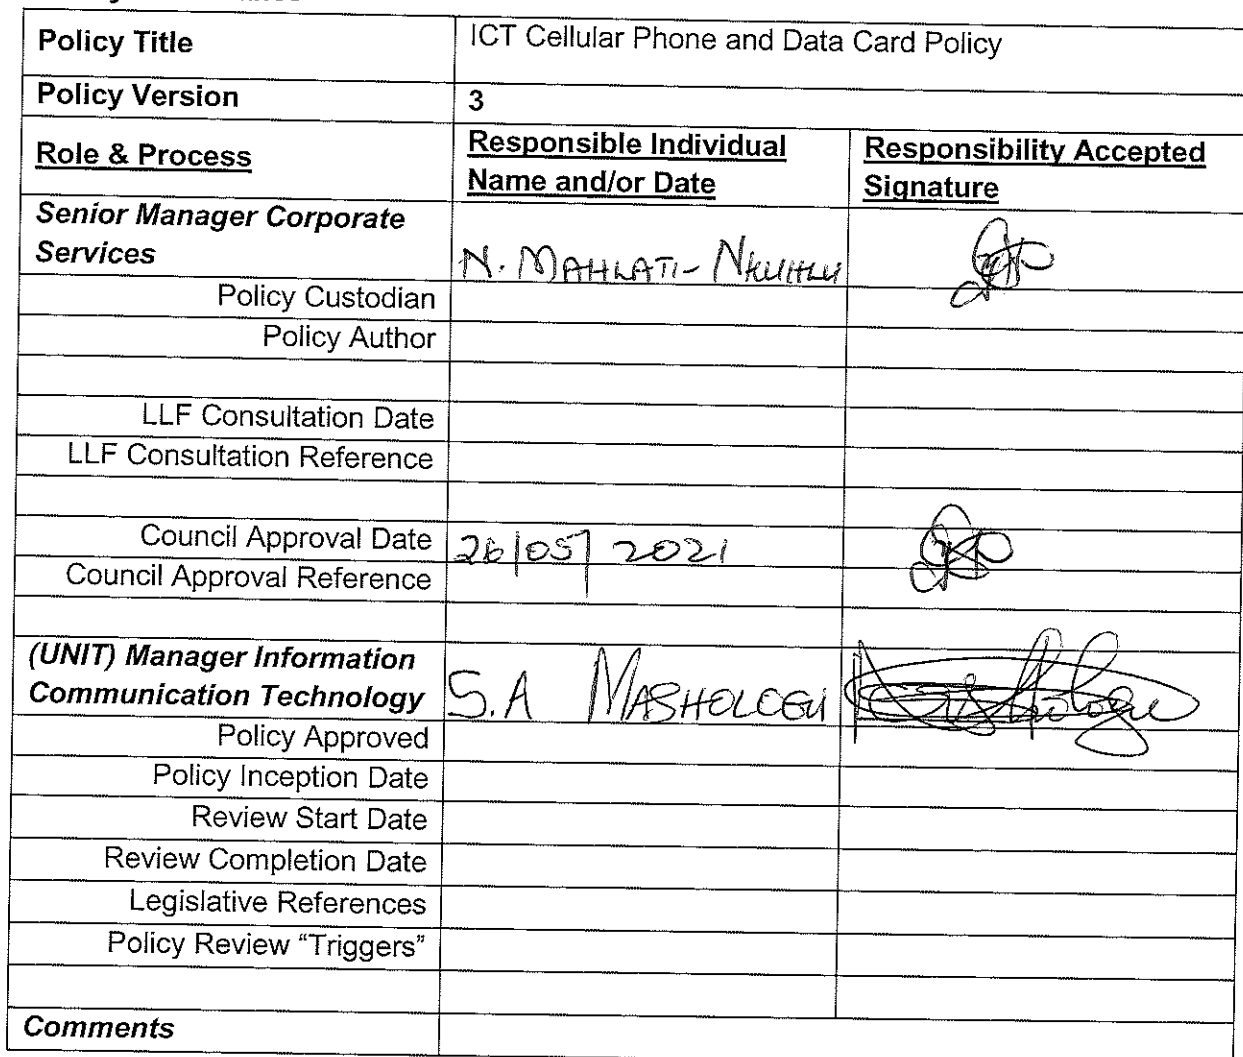 Policy Title ICT Cellular Phone and Data Card Policy
Policy Version 3
Role & Process Responsible Individual Name and/or Date Responsibility Accepted Signature
Senior Manager Corporate Services N. MAHLATI-NKUHLU
Policy Custodian
Policy Author
LLF Consultation Date
LLF Consultation Reference
Council Approval Date 26/05/2021
Council Approval Reference
(UNIT) Manager Information Communication Technology S.A MASHOLOGU
Policy Approved
Policy Inception Date
Review Start Date
Review Completion Date
Legislative References
Policy Review “Triggers”
Comments